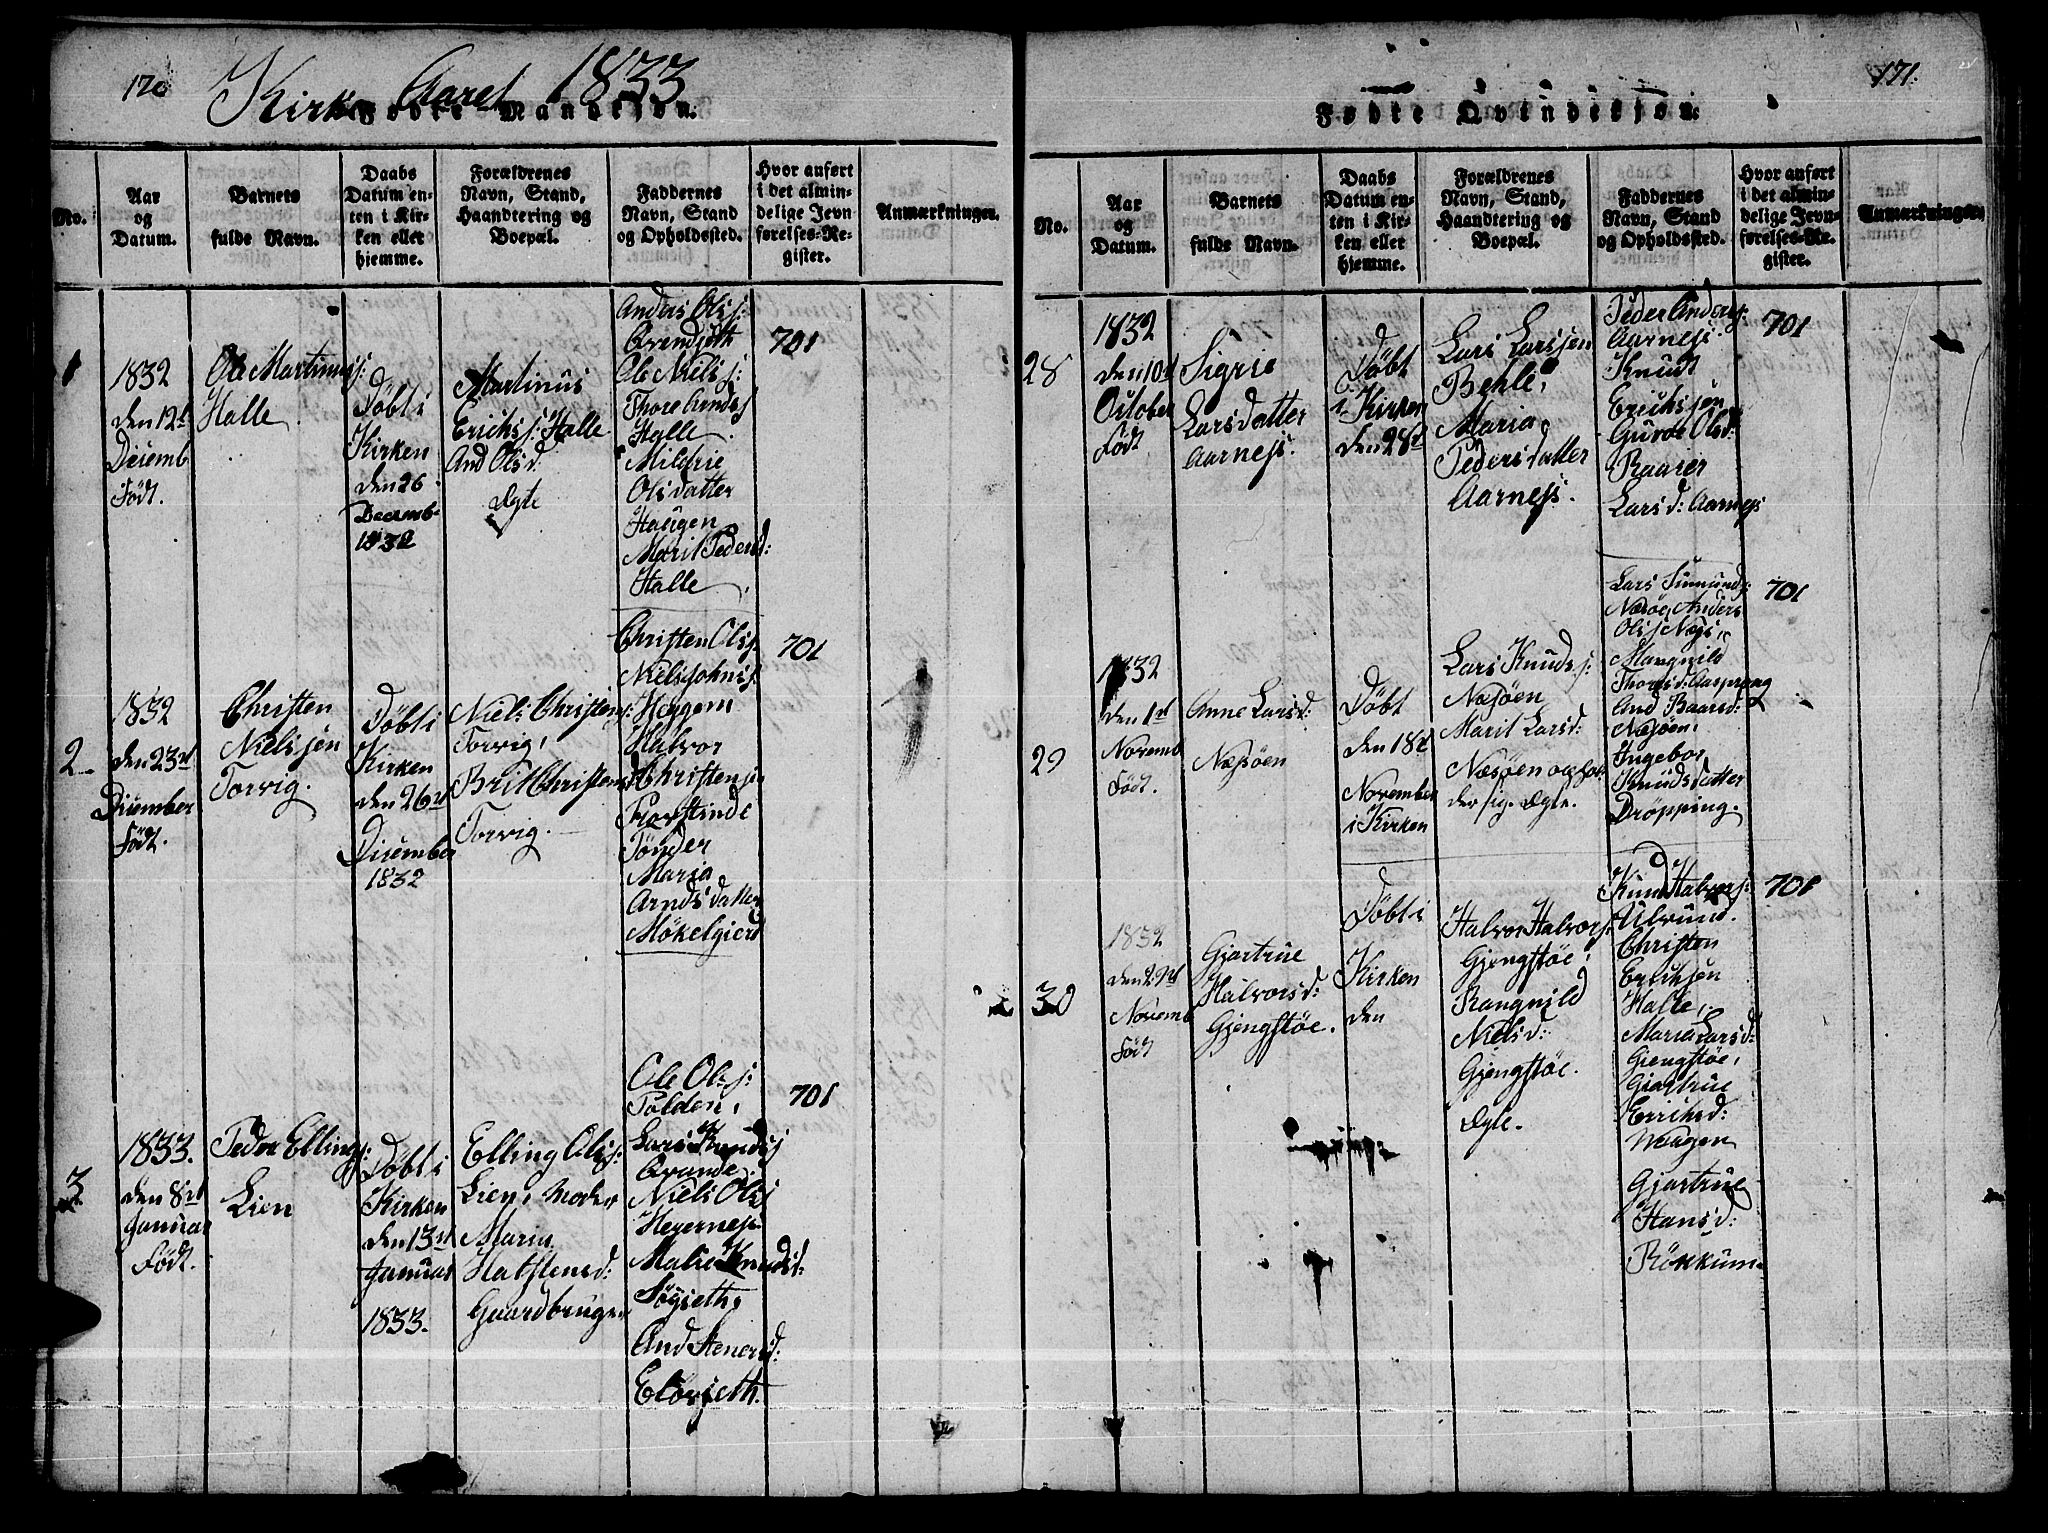 170
Kirke Aaret 1833
Fødte Mandkjøn.
No.
Aar
og
Datum.
Barnets
fulde Navn.
Daabs
Datum en-
ten i Kir-
ken eller
hjemme.
Forældrenes
Navn, Stand,
Haandtering og
Boepæl.
Faddernes
Navn, Stand
og Opholdssted.
Hvor anført
i det almin-
delige Jevn
førelses-Re-
gister.
Anmærkninger.
1
1832
den 12t
Decemb
Født.
Ole Martinusj:
Halle.
Döbt i
Kirken
den 26
Decemb-
1832
Martinus
Erichsj: Halle
And Olsd:
Egte
Anders Olsj:
Ole Nielsj:
Thore Arndsj
Halle.
Mildrie
Olsdatter
Haugen
Marit Pedersd:
Halle,
701
2
1832
den 23nt
December
Født.
Christen
Nielssøn
Torvig.
Döbt i
Kirken
den 26nt
December
1832
Niels Christensj:
Torvig,
Brit Christensd
Torvig.
Christen Olsj.
Niels Johnsj.
Heggem
Halvor
Christensøn
Tönder
Maria
Arndsdatter
Mökelgjerd
701
3
1833.
den 8nt
Januar
Født.
Peder Ellingsj:
Lien
Döbt i
Kirken
den 13nt
Januar
1833.
Elling Olsj:
Lien, Moder
Maria
Halstensd:
Gaardbruger
Ole Olsj:
Polden,
Lars Knudsj
Niels Olsj
Malie Knudsd:
And Stenersd:
701
171.
Fødte Qvindekjøn:
No.
Aar
og
Datum.
Barnets
fulde Navn.
Daabs
Datum en-
ten i Kir-
ken eller
hjemme.
Forældrenes
Navn, Stand,
Haandtering og
Boepæl.
Faddernes
Navn, Stand
og Opholdssted.
Hvor anført
i det almin-
delige Jevn-
førelses-Re-
gister.
Anmærkninger.
28
1832
den 10d
October
Født
Sigrie
Larsdatter
Aarness.
Döbt
i Kirken
den 28d
Lars Larssen
Behle,
Maria
Pedersdatter
Aarness.
Peder Andersj:
Aarness.
Knudt
Erichssøn
Guroe Olsd:
Baarer
Larsd: Aarness
701
29
1832
den 1st
Novemb
Født.
Anne Larsd:
Næsöen
Döbt
den 18d
November
i Kirken
Lars Knudsj:
Næsöen
Marit Larsd:
Næsöen
Egte.
Lars Simundsj:
Næsöe, Anders
Olsj Næss,
Mangnild
Thorsd: Aasprong
And Baarsd:
Næsöen,
Ingebor
Knudsdatter
Dröpping.
701
30
1832
den 29d
Novemb
Født
Gjertrue
Halvorsd:
Gjengstöe.
Döbt i
Kirken
den
Halvor Halvorsj:
Gjengstöe,
Rangnild
Nielsd:
Gjengstöe.
Egte.
Knud Halvorsj:
Ulvund.
Christen
Ericksøn
Halle,
Maria Larsd:
Gjengstöe,
Gjertrue
Erichsd:
Waagen
Gjertrue
Hansd:
Rökkum
701